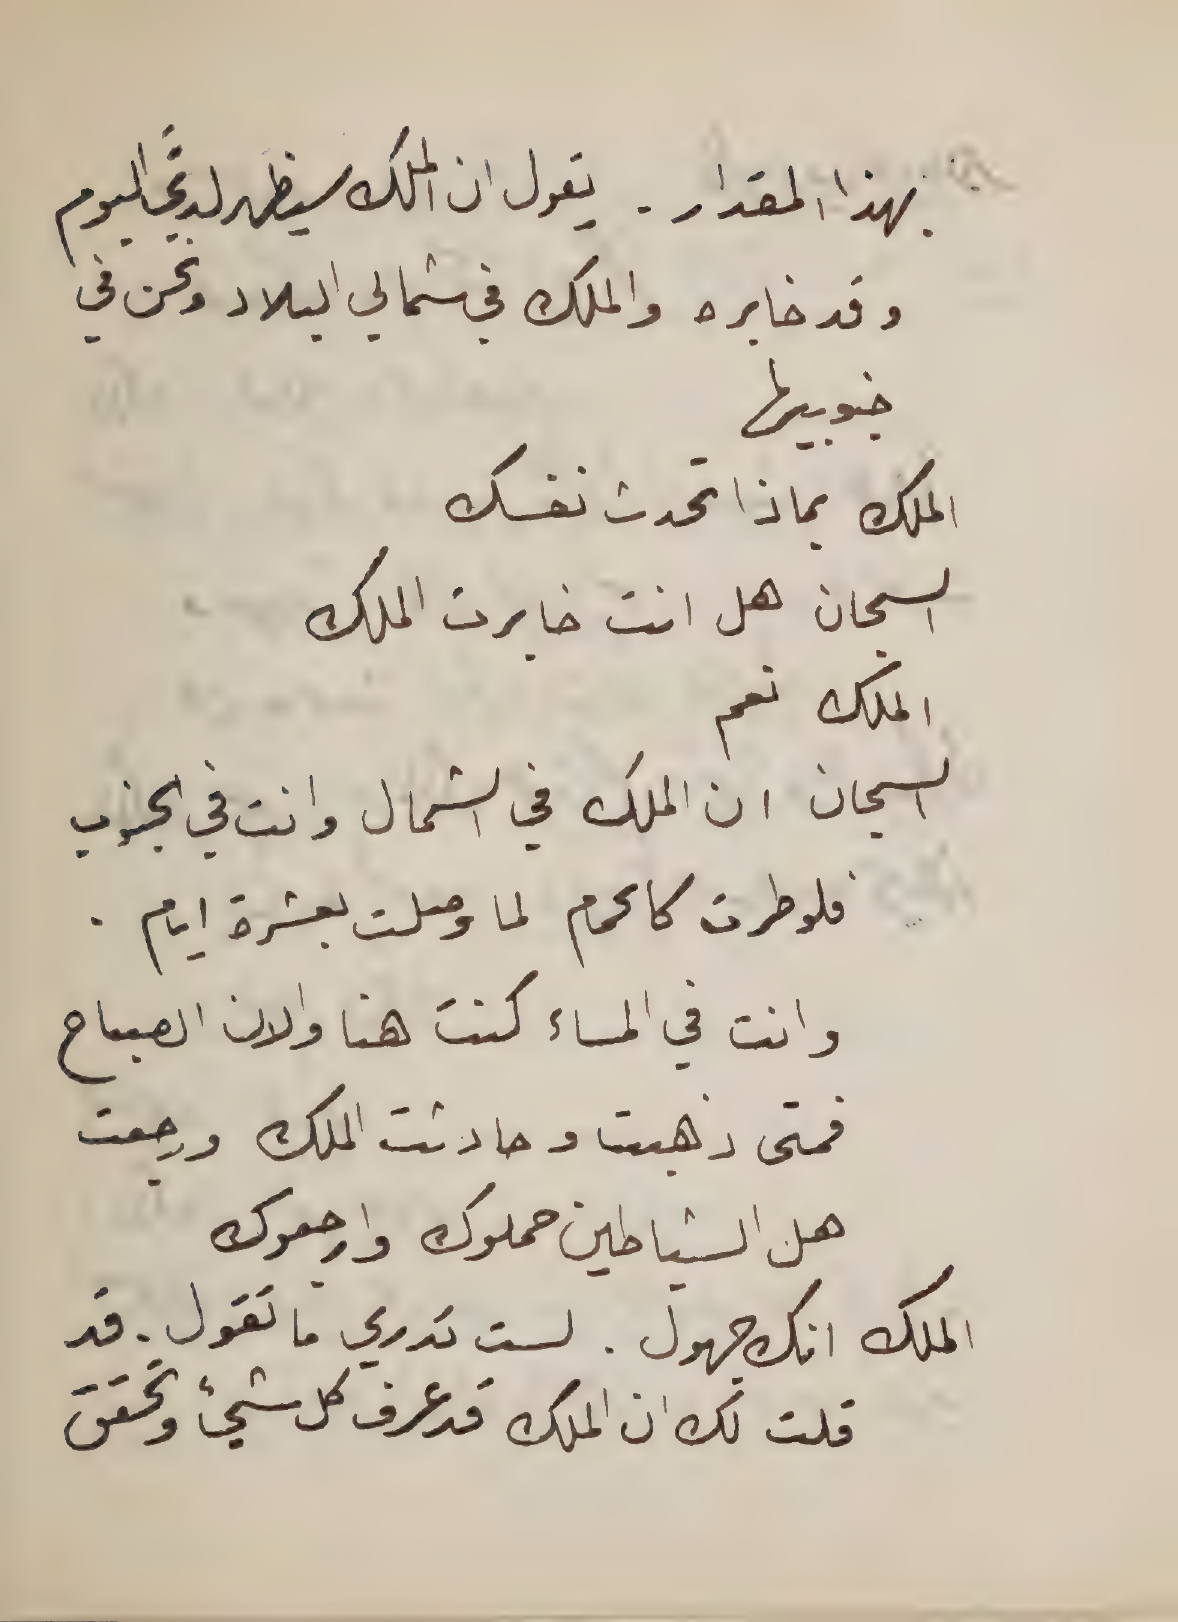 بهذا المقدار . يقول ان الملك سيظهر لديَّ اليوم
وقد خابره والملك في شمالي البلاد ونحن في
جنوبيها
الملك بماذا تحدث نفسك
السجان هل انت خابرت الملك
الملك نعم
السجان ان الملك في الشمال وانت في الجنوب
فلو طرت كالحمام لما وصلت بعشرة ايام .
وانت في المساء كنت هنا والان الصباح
فمتى ذهبت وحادثت الملك ورجعت
هل الشياطين حملوك وارجعوك
الملك انك جهول . لست تدري ما تقول . قد
قلت لك ان الملك قد عرف كل شيئ وتحقق